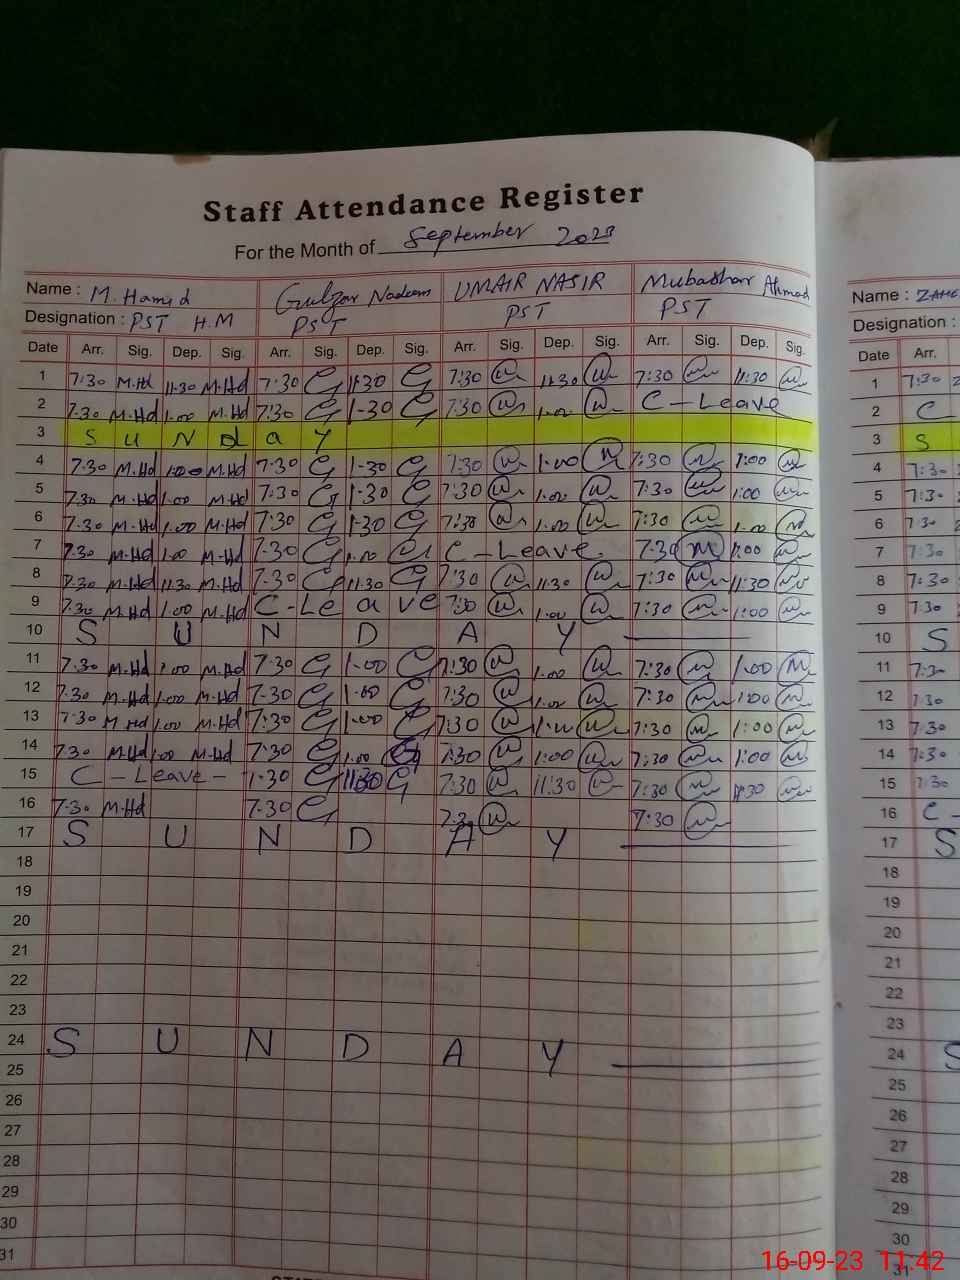 Staff Attendance Register
For the Month of September 2023
Name : M. Hamid Gulzar Nadeem UMAIR NASIR Mubashar Ahmad
Designation : PST H.M PST PST PST
Date Arr. Sig. Dep. Sig. Arr. Sig. Dep. Sig. Arr. Sig. Dep. Sig. Arr. Sig. Dep. Sig.
1 7:30 M.Hd 11:30 M.Hd 7:30 G 11:30 G 7:30 11:30 7:30 11:30
2 7:30 M.Hd 1:00 M.Hd 7:30 G 1-30 G 7:30 1:00 C-Leave
3 S U N d a Y
4 7:30 M.Hd 1:00 M.Hd 7-30 G 1-30 G 7:30 1:00 7:30 1:00
5 7:30 M.Hd 1.00 M.Hd 7-30 G 1-30 G 7:30 1.00 7:30 1:00
6 7.30 M.Hd 1.00 M.Hd 7:30 G 1-30 G 7:30 1.00 7:30 1.00
7 7.30 M.Hd 1.00 M.Hd 7.30 G 1.00 G C-Leave. 7.30 1:00
8 7.30 M.Hd 11.30 M.Hd 7.30 G 11.30 G 7:30 11.30 7:30 11:30
9 7.30 M.Hd 1.00 M.Hd C-Leave 7:30 1.00 7:30 1:00
10 S U N D A Y
11 7.30 M.Hd 1.00 M.Hd 7.30 G 1-00 G 7:30 1.00 7:30 1.00
12 7.30 M.Hd 1.00 M.Hd 7-30 G 1-00 G 7:30 1.00 7:30 1:00
13 7.30 M.Hd 1.00 M.Hd 7:30 G 1-00 7:30 1:00 7:30 1:00
14 7.30 M.Hd 1.00 M.Hd 7:30 G 1.00 G 7:30 1:00 7:30 1:00
15 C-Leave- 7.30 G 11:30 G 7:30 11:30 7:30 11:30
16 7.30 M.Hd 7.30 G 7.30 7:30
17 S U N D A Y
18
19
20
21
22
23
24 S U N D A Y
25
26
27
28
29
30
31
Name : ZAHE
Designation :
Date Arr.
1 7:30
2 C
3 S
4 7:30
5 7:30
6 7:30
7 7:30
8 7:30
9 7.30
10 S
11 7:30
12 7.30
13 7.30
14 7:30
15 7:30
16 C-
17 S
18
19
20
21
22
23
24 S
25
26
27
28
29
30
31
16-09-23 11:42